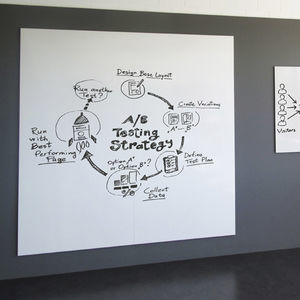 Design Base Layout
Run another
Test?
A/B
Testing
Strategy
Create Variations
"A" "B"
Define
Test Plan
Option A"
or Option B"?
Collect
Data
Run
with
Best
Performing
Page
Visitors